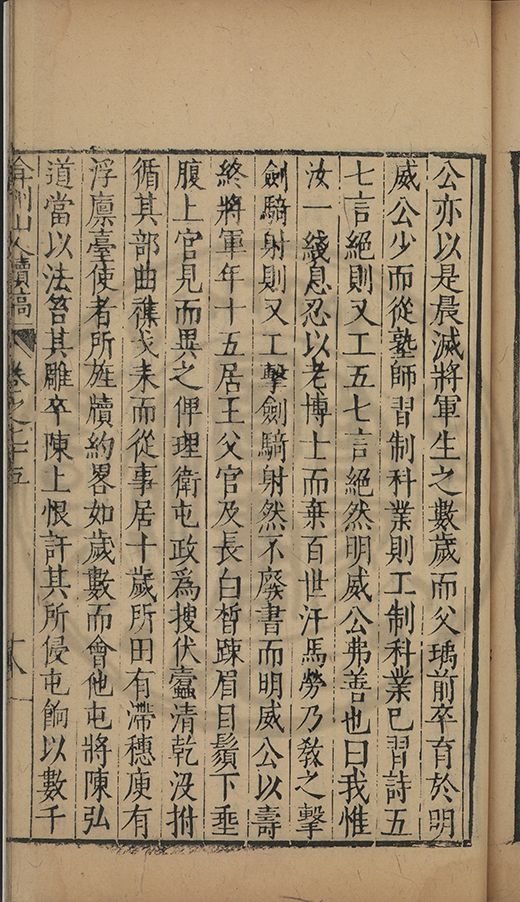 公亦以是晨滅將軍生之數歲而父瑀前卒育於明
威公少而從塾師習制科業則工制科業已習詩五
七言絕則又工五七言絕然明威公弗善也曰我惟
汝一綫息忍以老博士而棄百世汗馬勞乃教之擊
劍騎射則又工擊劍騎射然不廢書而明威公以壽
終將軍年十五居王父官及長白皙踈眉目鬚下垂
腹上官見而異之俾理衛屯政爲搜伏蠹清乾沒拊
循其部曲襍戈耒而從事居十歲所田有滯穗庾有
浮廪臺使者所旌牘約畧如歲數而會他屯將陳弘
道當以法笞其雕卒陳上恨訐其所侵屯餉以數千
弇州山人續稿 卷之七十五